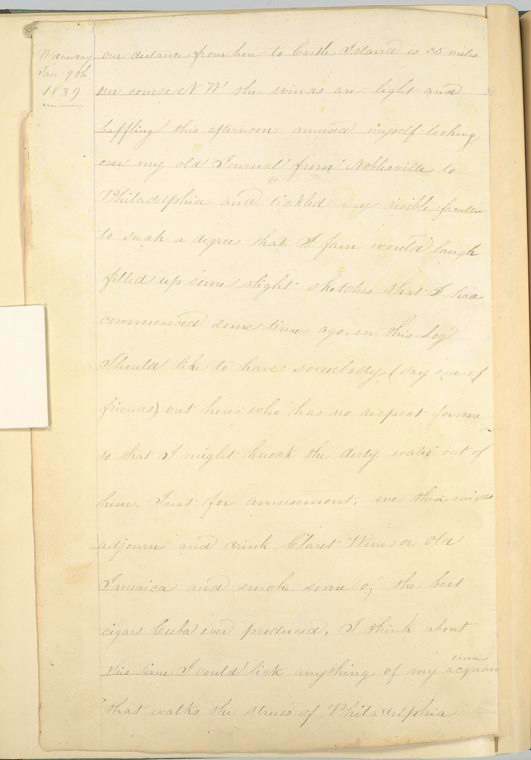 Wednesday our distance from here to Castle Island is 33 miles
Jan 9th
1839 our course N W the winds are light and
baffling this afternoon amused myself looking
over my old Journal from Noblesville to
Philadelphia and tickled my risible faculties
to such a degree that I fain would laugh
filled up some slight sketches that I had
commenced some time ago in this Log
I should like to have somebody (say one of
friends) out here who has no respect for me
so that I might knock the dirty water out of
him. Just for amusement, we then might
adjourn and drink Claret Wine or Old
Jamaica and smoke some of the best
cigars Cuba ever produced, I think about
this time I could lick anything of my
that walks the streets of Philadelphia